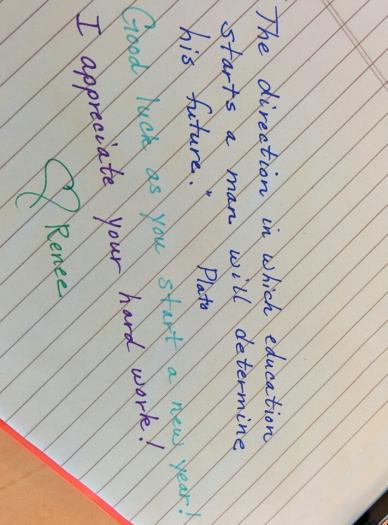 "The direction in which education
starts a man will determine
his future." Plato
Good luck as you start a new year!
I appreciate your hard work!
Renee